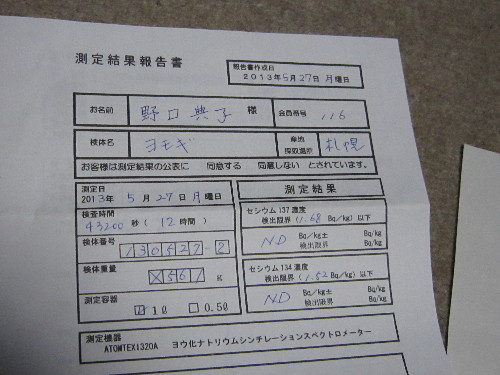 測定結果報告書
報告書作成日
2013年5月27日 月曜日
お名前 野口典子 様 会員番号 116
検体名 ヨモギ 産地 採取場所 札幌
お客様は測定結果の公表に 同意する 同意しない とされています。
測定日
2013年 5月27日月曜日
検査時間
43200 秒 (12時間)
検体番号
130527-2
検体重量
561 g
測定容器 ☑ 1.0 □ 0.50
測定結果
セシウム137濃度
検出限界 (1.68 Bq/kg) 以下
ND Bq/kg± Bq/kg
検出限界 Bq/kg
セシウム134濃度
検出限界 (1.52 Bq/kg) 以下
ND Bq/kg± Bq/kg
検出限界 Bq/kg
測定機器
ATOMTEX1320A ヨウ化ナトリウムシンチレーションスペクトロメーター